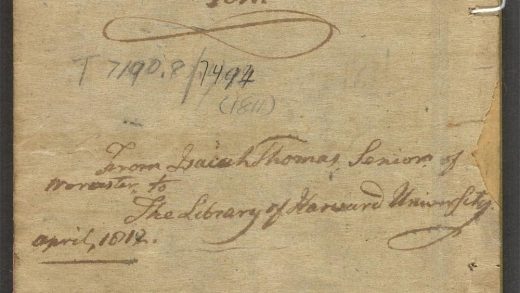 T 7190.8/7494
(1811)
From Isaiah Thomas, Senior, of
Worcester, to
The Library of Harvard University.
april, 1812.